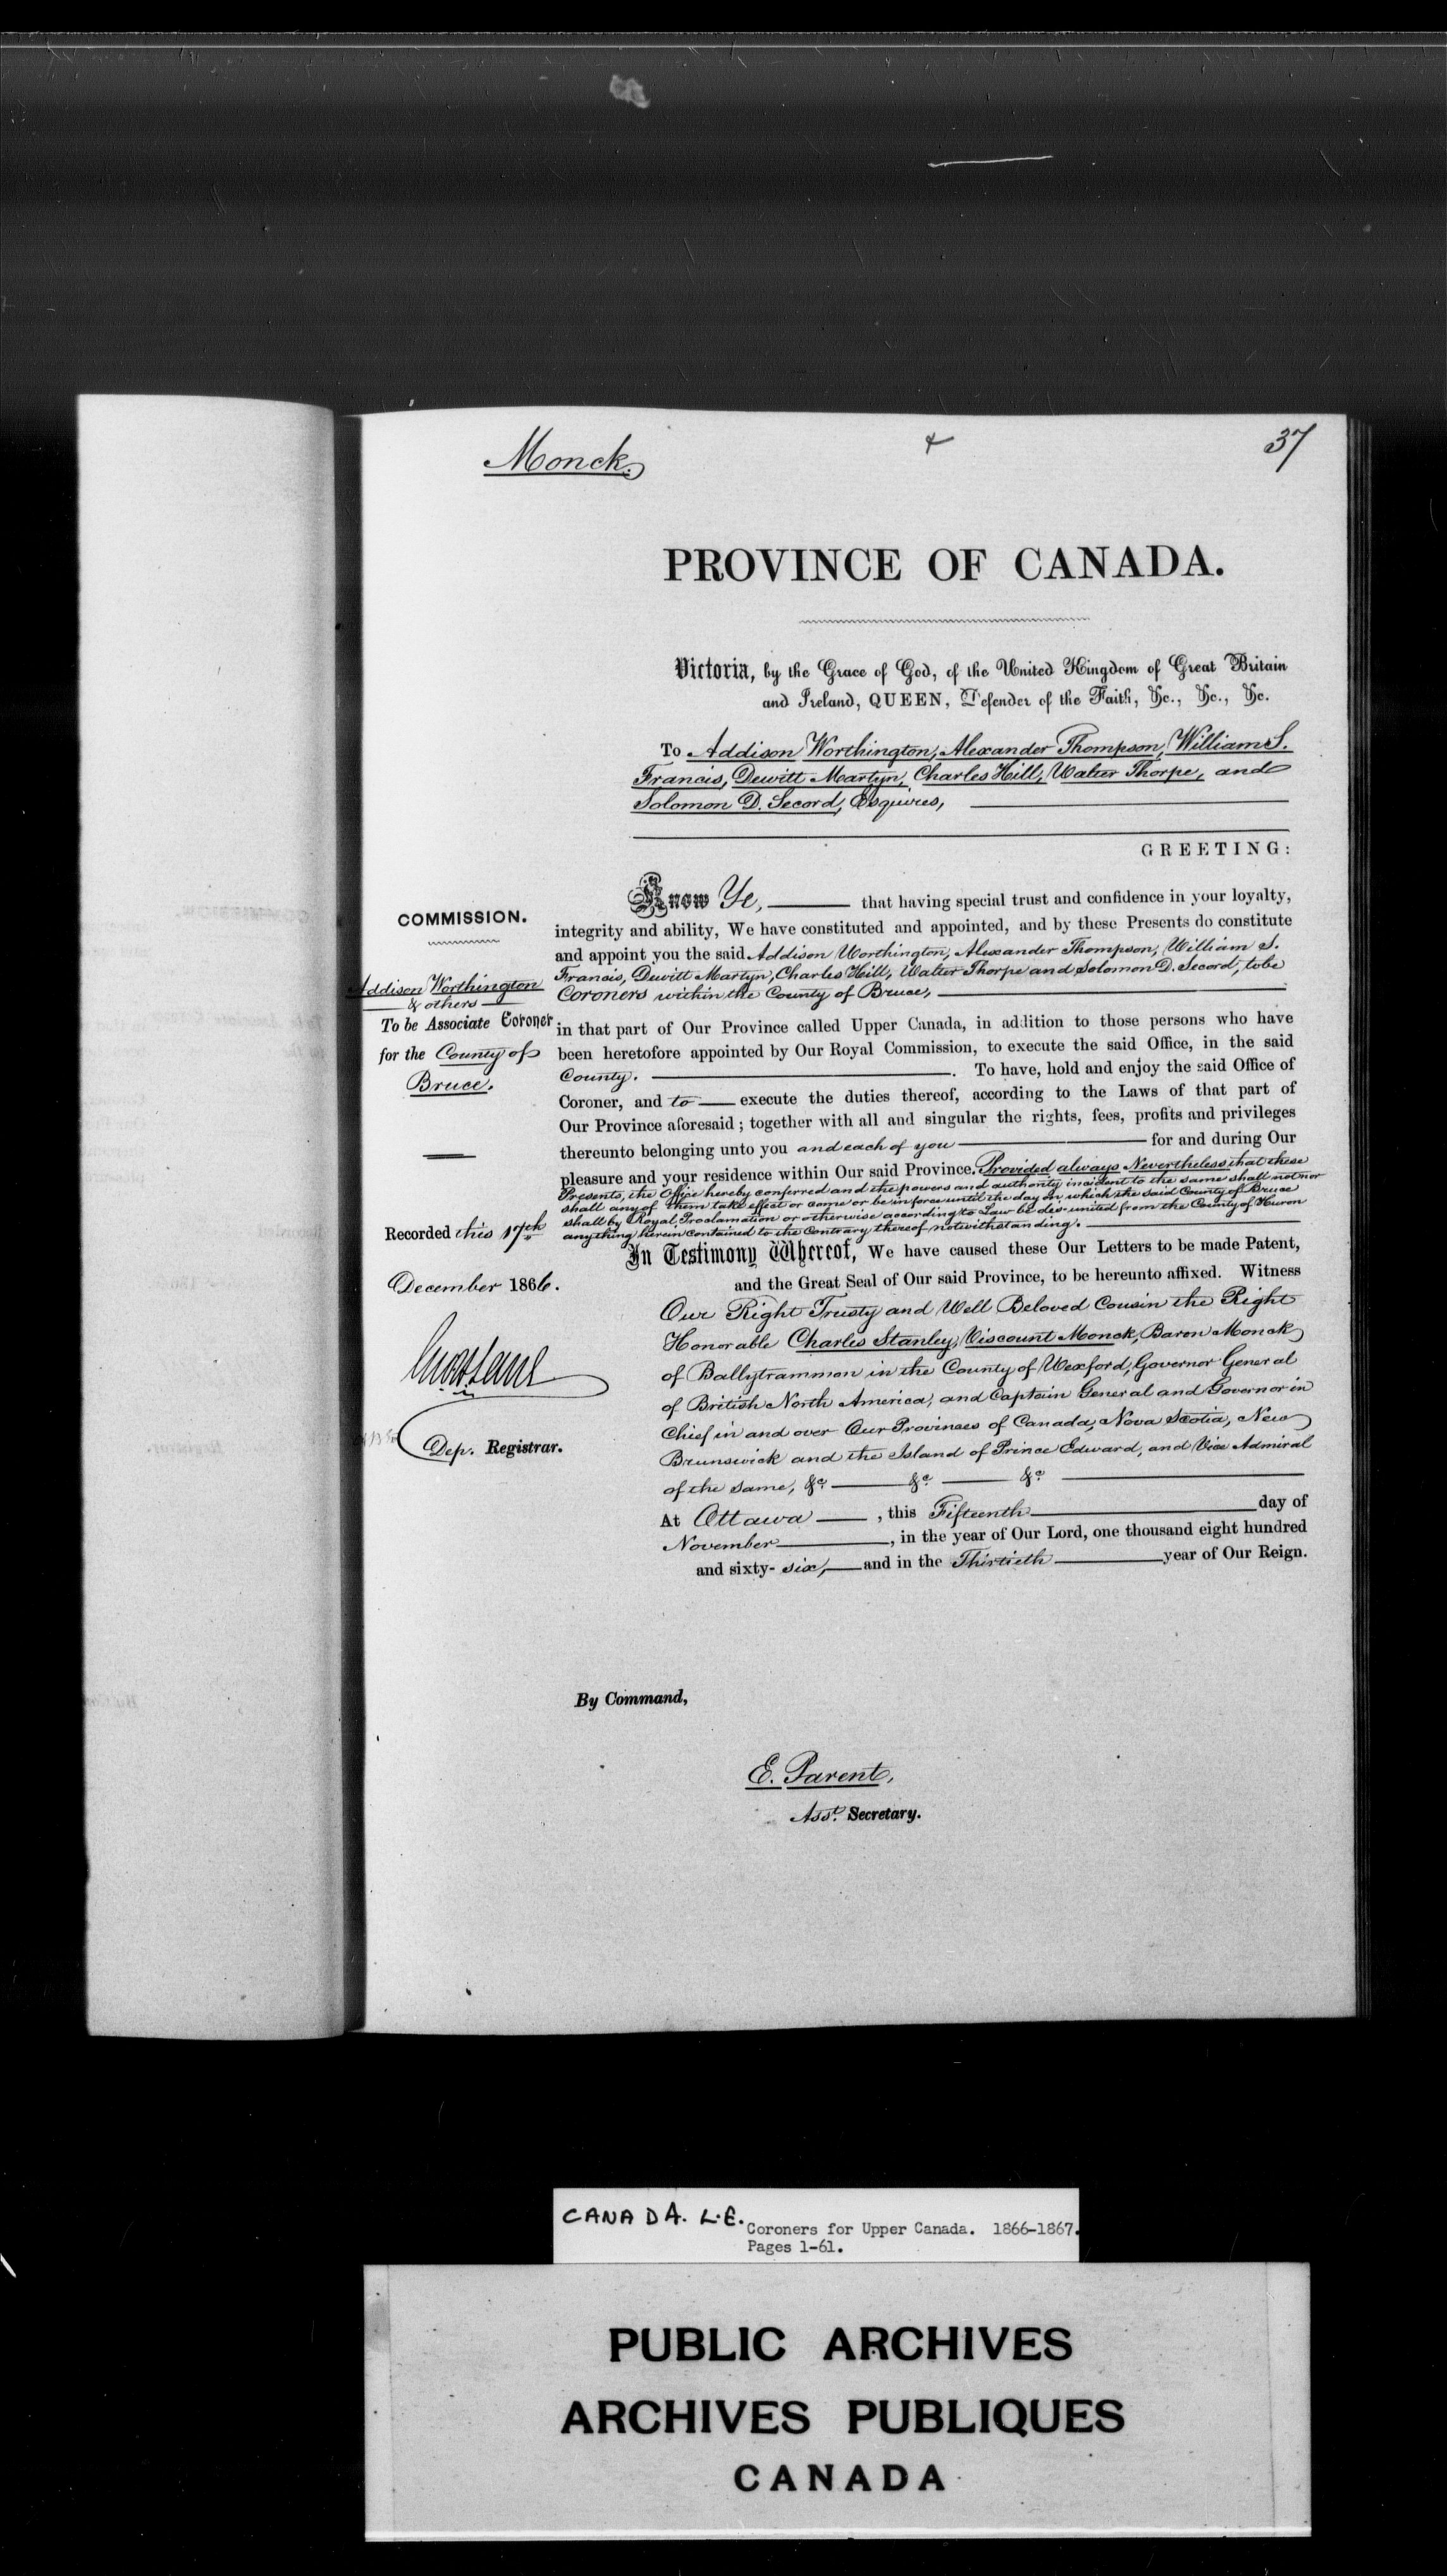 Monck
37
PROVINCE OF CANADA.
Victoria, by the Grace of God, of the United Kingdom of Great Britain
and Ireland, QUEEN, Defender of the Faith, &c., &c., &c.
To Addison Worthington, Alexander Thompson, William S.
Francis, Dewitt Martyn, Charles Hill, Walter Thorpe, and
Solomon D. Secord, Esquires,
GREETING:
Know Ye, that having special trust and confidence in your loyalty,
integrity and ability, We have constituted and appointed, and by these Presents do constitute
and appoint you the said Addison Worthington, Alexander Thompson, William S.
Francis, Dewitt Martyn, Charles Hill, Walter Thorpe and Solomon D. Secord, to be
Coroners within the County of Bruce,
in that part of Our Province called Upper Canada, in addition to those persons who have
been heretofore appointed by Our Royal Commission, to execute the said Office, in the said
County. To have, hold and enjoy the said Office of
Coroner, and to execute the duties thereof, according to the Laws of that part of
Our Province aforesaid; together with all and singular the rights, fees, profits and privileges
thereunto belonging unto you and each of you for and during Our
pleasure and your residence within Our said Province. Provided always Nevertheless that these
Presents, the Office hereby conferred and the powers and authority incident to the same shall not nor
shall any of them take effect or come or be in force until the day on which the said County of Bruce
shall by Royal Proclamation or otherwise according to Law be dis-united from the County of Huron
anything herein contained to the Contrary thereof notwithstanding.
In Testimony Whereof, We have caused these Our Letters to be made Patent,
and the Great Seal of Our said Province, to be hereunto affixed. Witness
Our Right Trusty and Well Beloved Cousin the Right
Honorable Charles Stanley, Viscount Monck, Baron Monck
of Ballytrammon in the County of Wexford, Governor General
of British North America, and Captain General and Governor in
Chief in and over Our Provinces of Canada, Nova Scotia, New
Brunswick and the Island of Prince Edward, and Vice Admiral
of the same, &c. &c. &c.
At Ottawa, this Fifteenth day of
November, in the year of Our Lord, one thousand eight hundred
and sixty-six, and in the Thirtieth year of Our Reign.
By Command,
E. Parent,
Asst. Secretary.
COMMISSION.
Addison Worthington
& others
To be Associate Coroner
for the County of
Bruce.
Recorded this 17th
December 1866.
Dep. Registrar.
CANADA. L.E. Coroners for Upper Canada. 1866-1867.
Pages 1-61.
PUBLIC ARCHIVES
ARCHIVES PUBLIQUES
CANADA